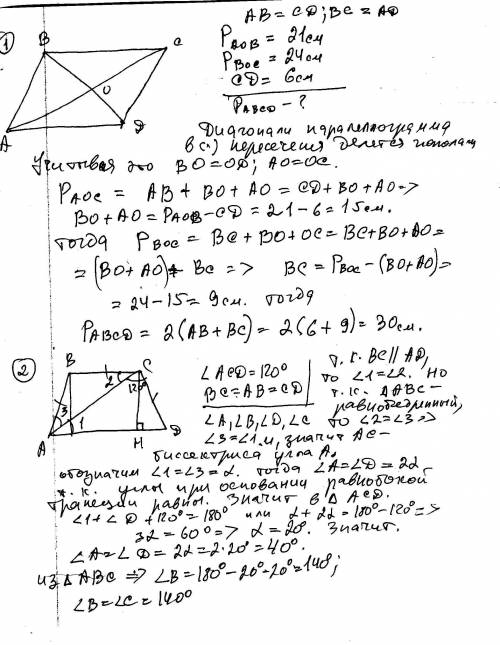 AB = CD; BC = AD
1
B
C
O
A
D
P AOB = 21см
P BOC = 24см
CD = 6см
P ABCD - ?
Диагонали параллелограмма
в (·) пересечения делятся пополам
Учитывая это BO=OD; AO=OC.
P AOC = AB + BO + AO = CD + BO + AO =>
BO + AO = P AOB - CD = 21 - 6 = 15см.
тогда P BOC = BC + BO + OC = BC + BO + AO =
= (BO + AO) + BC => BC = P BOC - (BO + AO) =
= 24 - 15 = 9см. тогда
P ABCD = 2(AB + BC) = 2(6 + 9) = 30см.
2
B
C
2
120°
3
1
A
H
D
∠ACD = 120°
BC = AB = CD
∠A, ∠B, ∠D, ∠C
т.к. BC || AD,
то ∠1 = ∠2. Но
т.к. ΔABC -
равнобедренный,
то ∠2 = ∠3 =>
∠3 = ∠1 и, значит AC -
биссектриса угла A.
обозначим ∠1 = ∠3 = α. тогда ∠A = ∠D = 2α
т.к. углы при основании равнобокой
трапеции равны. Значит в Δ ACD.
∠1 + ∠D + 120° = 180° или α + 2α = 180° - 120° =>
3α = 60° => α = 20°. Значит.
∠A = ∠D = 2α = 2·20° = 40°.
из Δ ABC => ∠B = 180° - 20° - 20° = 140°;
∠B = ∠C = 140°